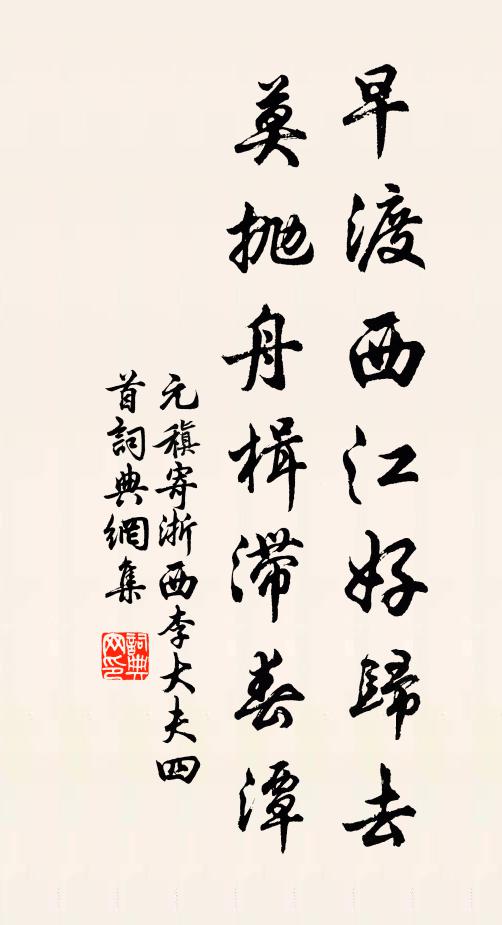 早渡西江好歸去
莫拋舟楫滯春潭
元稹寄浙西李大夫四
首詞典網集
詞典
网印